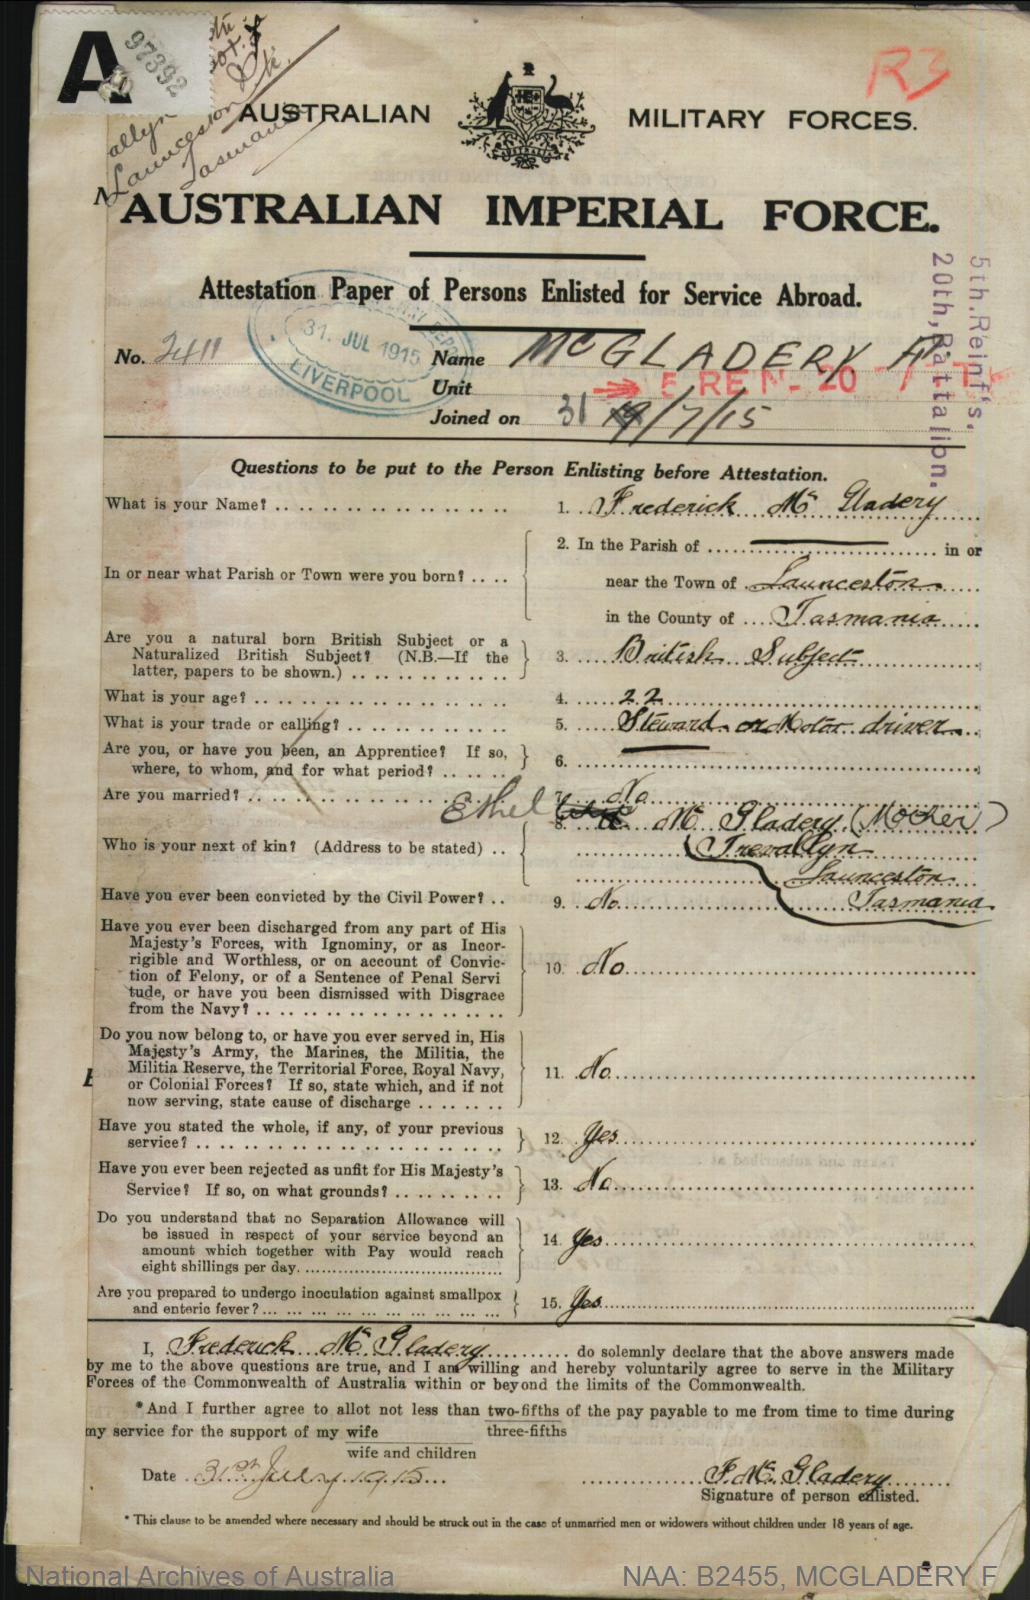 A
97392
R3
allyn
Launceston
Tasmania
AUSTRALIAN MILITARY FORCES.
AUSTRALIAN IMPERIAL FORCE.
Attestation Paper of Persons Enlisted for Service Abroad.
5th.Reinf's,
20th,Battalion.
31. JUL 1915
LIVERPOOL
No. 2411 Name McGLADERY F.
Unit 5 REIN- 20
Joined on 31/7/15
Questions to be put to the Person Enlisting before Attestation.
What is your Name? 1. Frederick Mc Gladery
2. In the Parish of in or
In or near what Parish or Town were you born? near the Town of Launceston
in the County of Tasmania
Are you a natural born British Subject or a
Naturalized British Subject? (N.B.—If the 3. British Subject
latter, papers to be shown.)
What is your age? 4. 22
What is your trade or calling? 5. Steward or Motor driver
Are you, or have you been, an Apprentice? If so,
where, to whom, and for what period? 6.
Are you married? 7. No
Ethel
8. Mc Gladery (Mother)
Who is your next of kin? (Address to be stated) Trevallyn
Launceston
Tasmania
Have you ever been convicted by the Civil Power? 9. No
Have you ever been discharged from any part of His
Majesty's Forces, with Ignominy, or as Incor-
rigible and Worthless, or on account of Convic-
tion of Felony, or of a Sentence of Penal Servi 10. No
tude, or have you been dismissed with Disgrace
from the Navy?
Do you now belong to, or have you ever served in, His
Majesty's Army, the Marines, the Militia, the
Militia Reserve, the Territorial Force, Royal Navy, 11. No
or Colonial Forces? If so, state which, and if not
now serving, state cause of discharge
Have you stated the whole, if any, of your previous
service? 12. Yes
Have you ever been rejected as unfit for His Majesty's
Service? If so, on what grounds? 13. No
Do you understand that no Separation Allowance will
be issued in respect of your service beyond an 14. Yes
amount which together with Pay would reach
eight shillings per day.
Are you prepared to undergo inoculation against smallpox
and enteric fever? 15. Yes
I, Frederick Mc Gladery do solemnly declare that the above answers made
by me to the above questions are true, and I am willing and hereby voluntarily agree to serve in the Military
Forces of the Commonwealth of Australia within or beyond the limits of the Commonwealth.
*And I further agree to allot not less than two-fifths of the pay payable to me from time to time during
three-fifths
my service for the support of my wife
wife and children
Date 31st July 1915 F. Mc Gladery
Signature of person enlisted.
* This clause to be amended where necessary and should be struck out in the case of unmarried men or widowers without children under 18 years of age.
National Archives of Australia NAA: B2455, MCGLADERY F